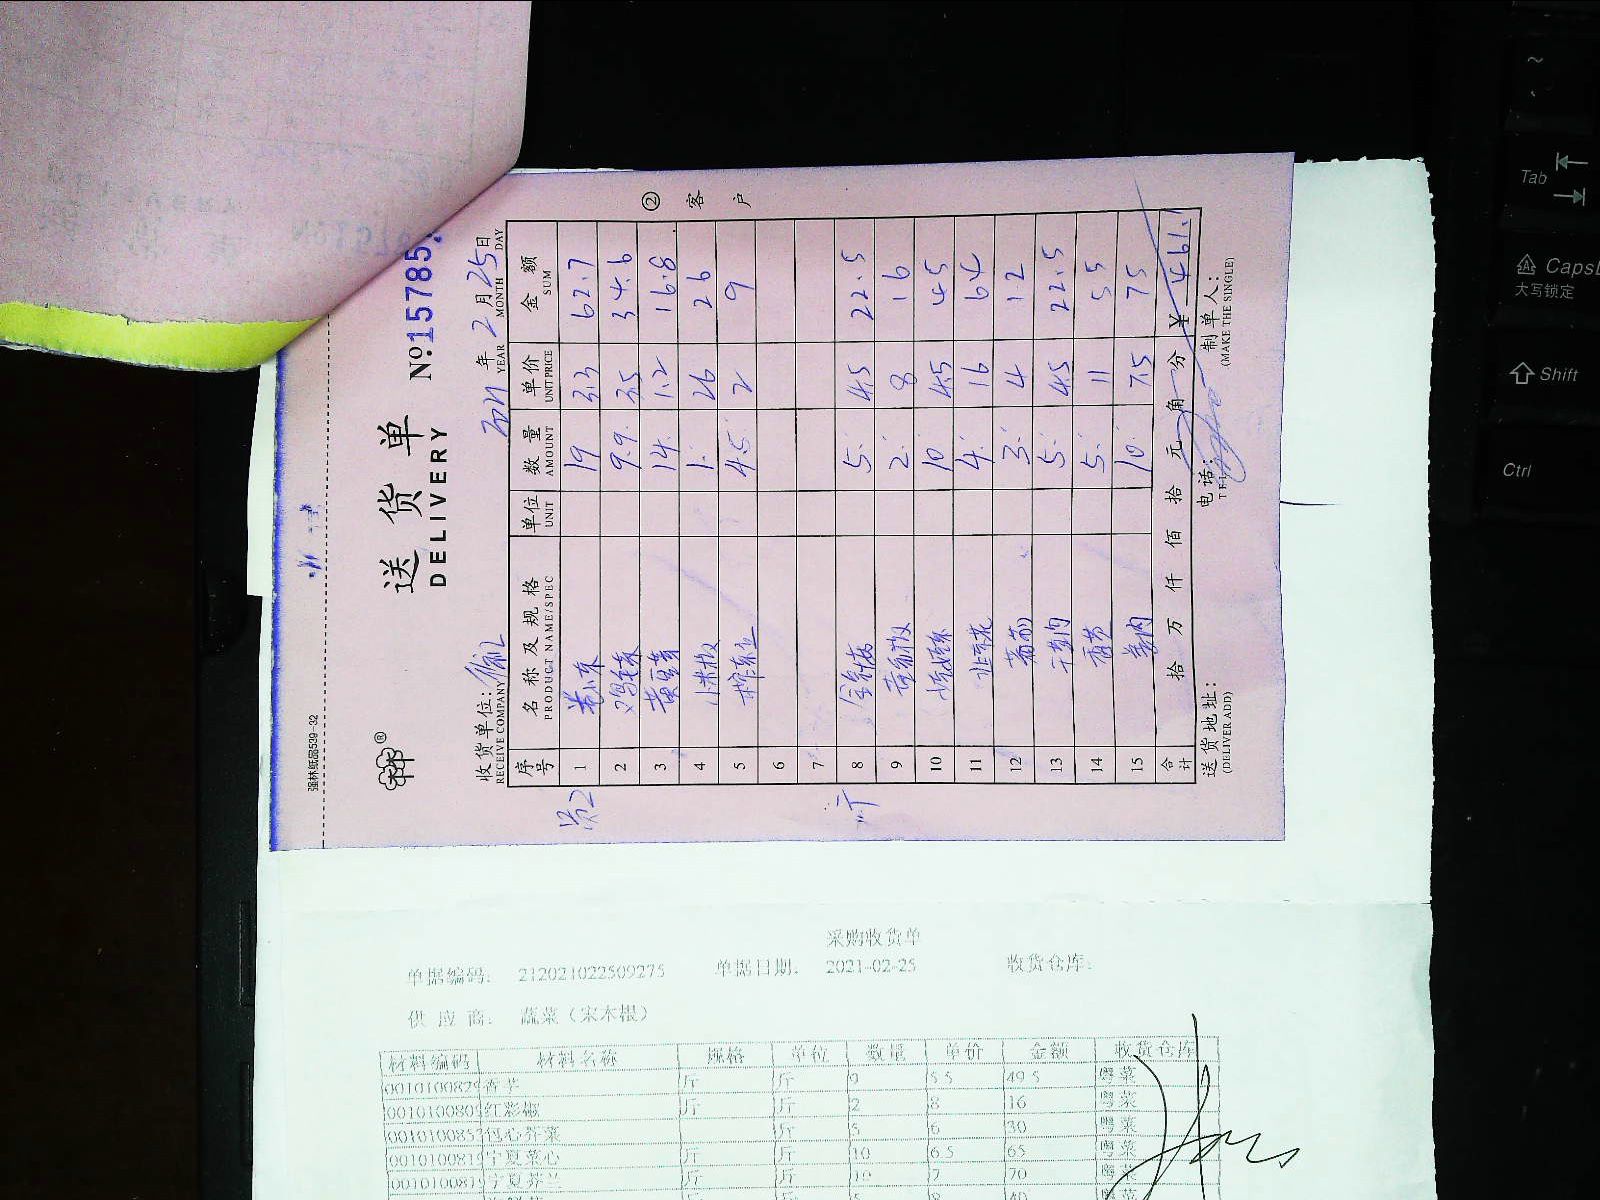 强林纸品539-32
送货单
DELIVERY
No 15785
收货单位:
RECEIVE COMPANY
2021 年 2 月 25 日
YEAR MONTH DAY
序号 名称及规格 单位 数量 单价 金额
PRODUCT NAME/SPEC UNIT AMOUNT UNIT PRICE SUM
1 19 3.3 62.7
2 9.9 3.5 34.6
3 黄豆芽 14 1.2 16.8
4 小米椒 1 26 26
5 4.5 2 9
6
7
8 5 4.5 22.5
9 2 8 16
10 10 4.5 45
11 韭菜花 4 16 64
12 3 4 12
13 5 4.5 22.5
14 香芹 5 11 55
15 10 7.5 75
合计 拾 万 仟 佰 拾 元 角 分 ¥ 461.1
送货地址: 电话: 制单人:
(DELIVER ADD) TEL (MAKE THE SINGLE)
② 客户
采购收货单
单据编码: 212021022509275 单据日期: 2021-02-25 收货仓库:
供应商: 蔬菜(宋木根)
材料编码 材料名称 规格 单位 数量 单价 金额 收货仓库
0010100829 香芹 斤 斤 9 5.5 49.5 粤菜
0010100805 红彩椒 斤 斤 2 8 16 粤菜
0010100853 包心芥菜 斤 5 6 30 粤菜
0010100819 宁夏菜心 斤 斤 10 6.5 65 粤菜
0010100819 宁夏芥兰 斤 斤 10 7 70 粤菜
斤 斤 5 8 40 粤菜
~
Tab
CapsL
大写锁定
Shift
Ctrl